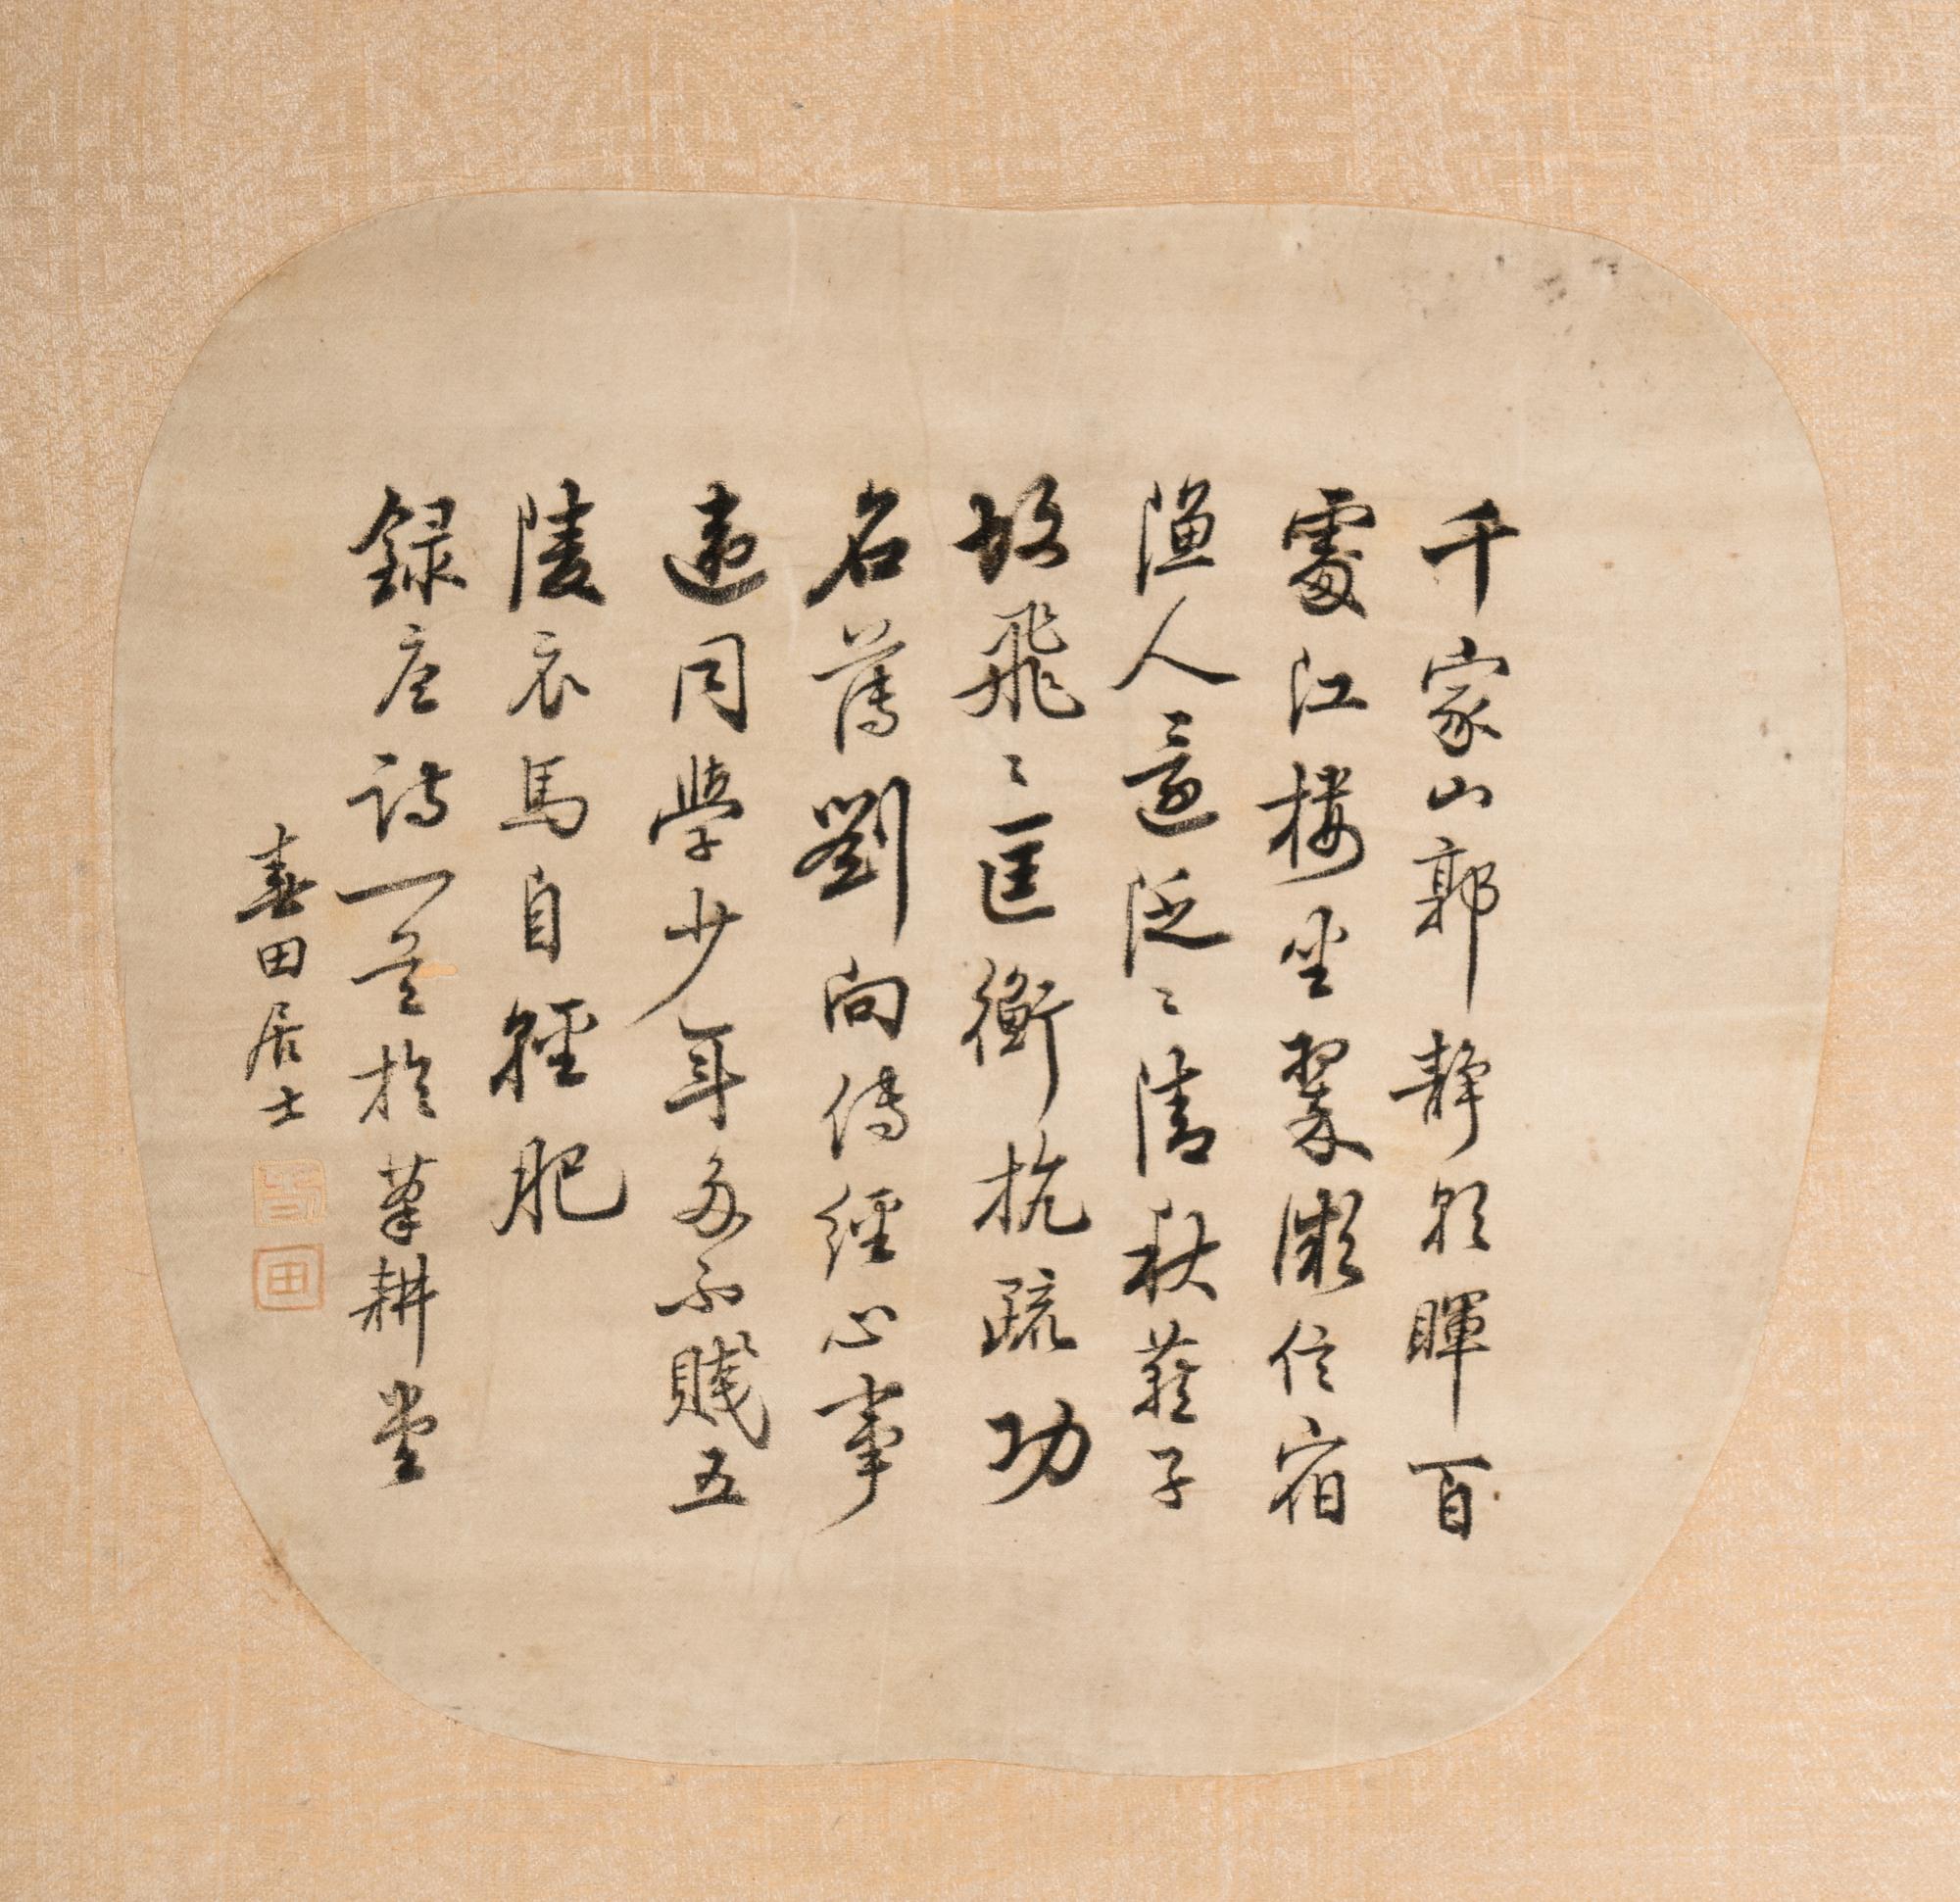 千家山郭靜朝暉百
處江樓坐翠微信宿
漁人還泛〻清秋燕子
故飛〻匡衡抗疏功
名薄劉向傳經心事
違同學少年多不賤五
陵衣馬自輕肥
録唐詩一首於筆耕堂
田居士
田